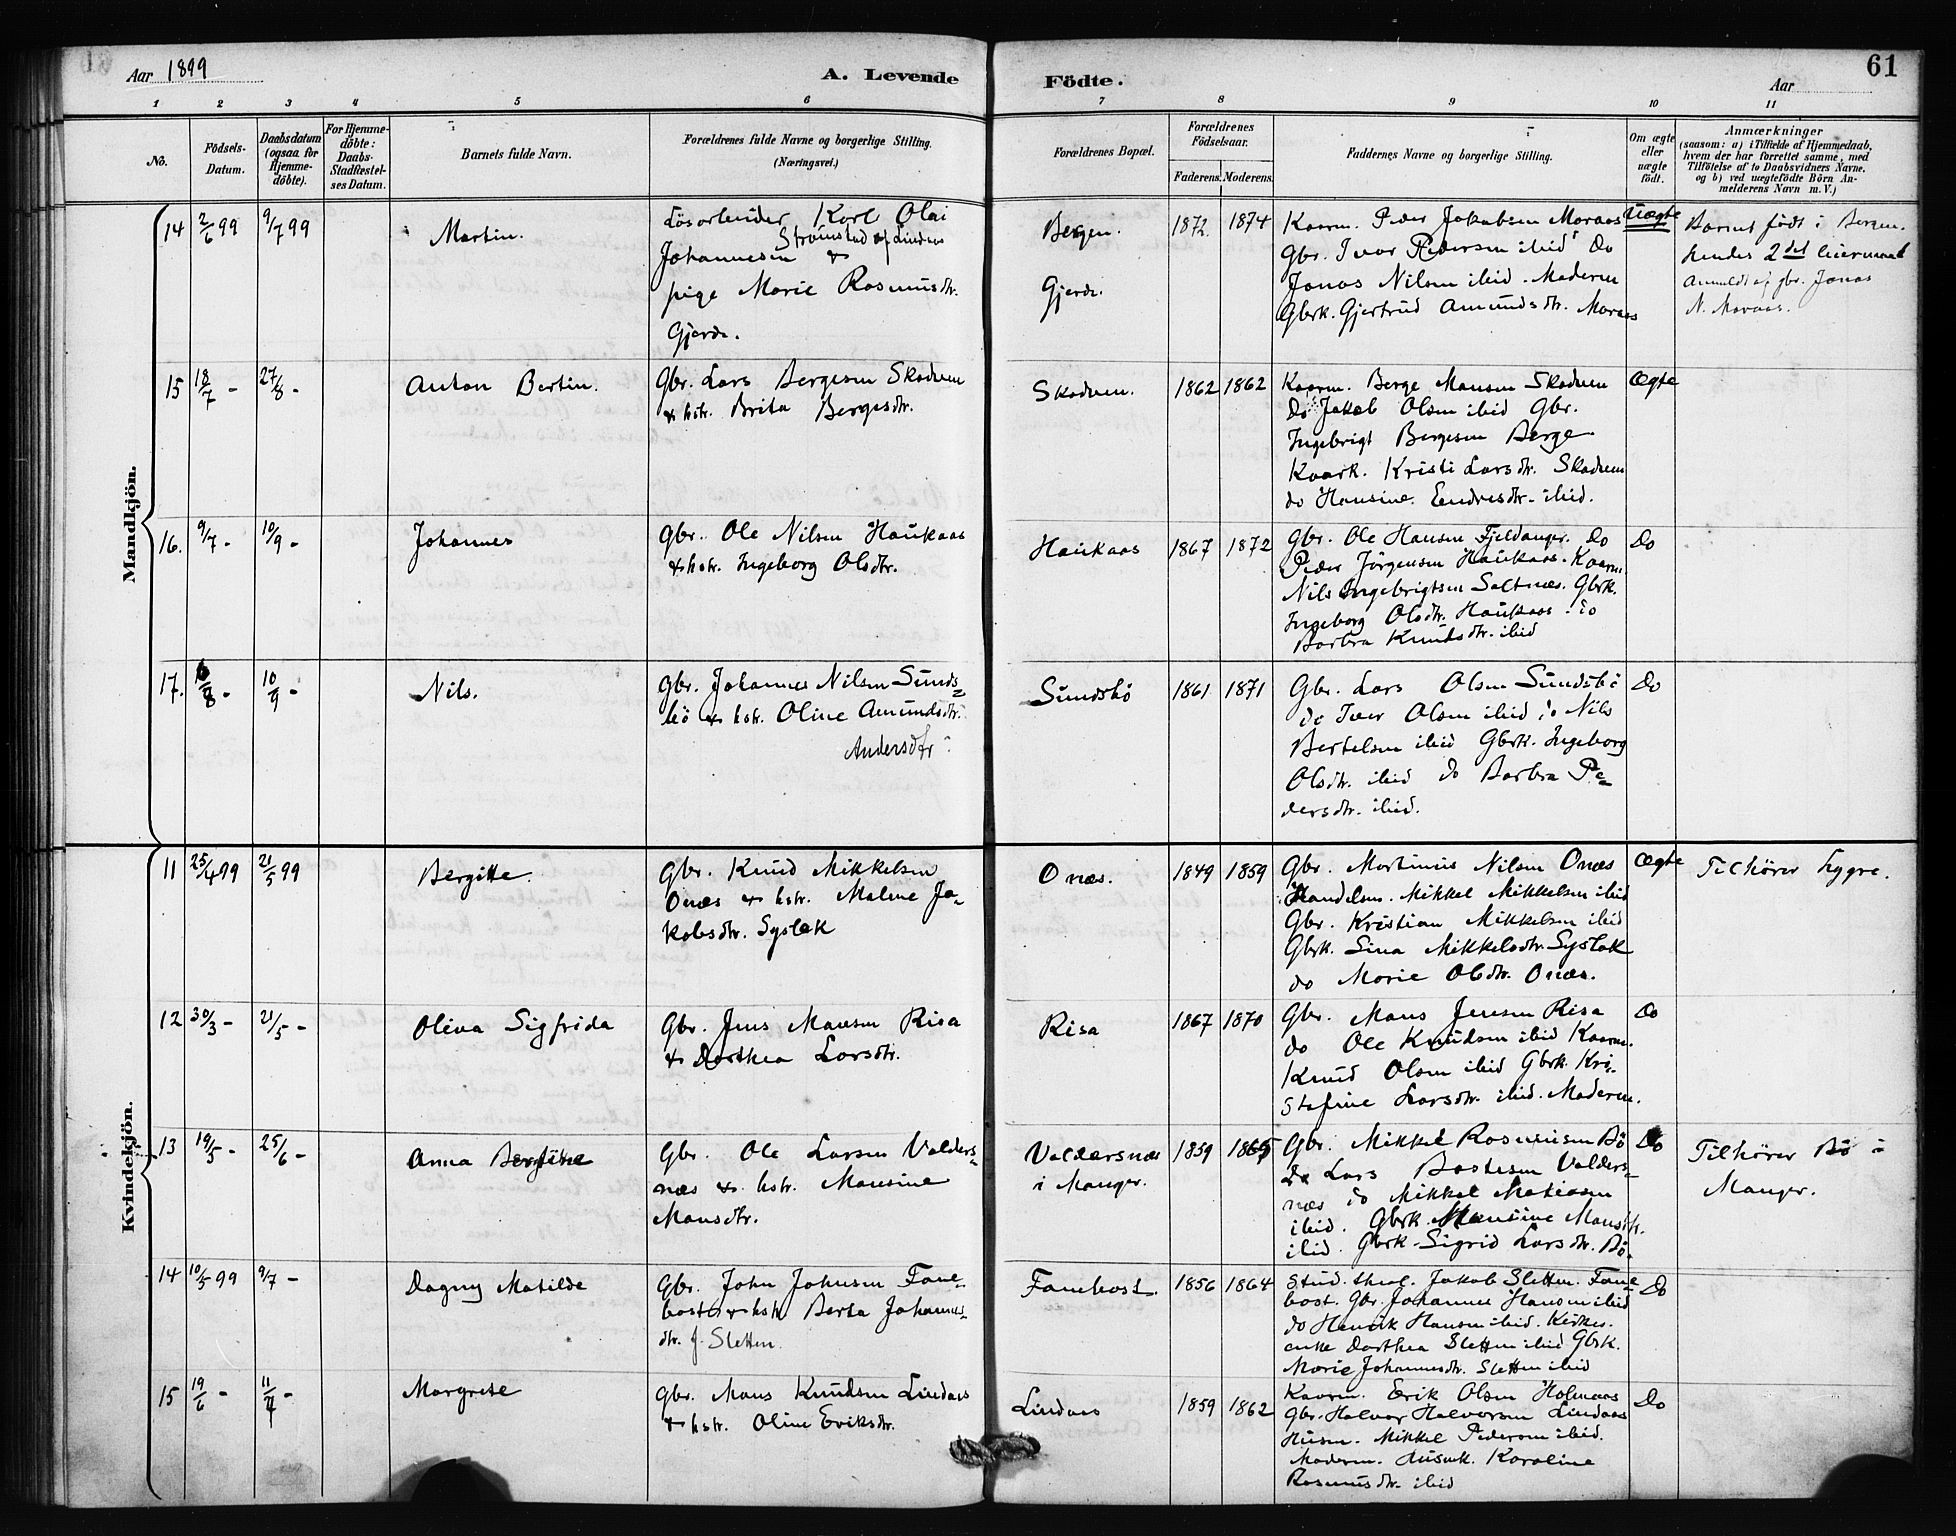 Aar 1899
A. Levende
Födte.
Aar
61
1 2 3 4 5 6 7 8 9 10 11
No.
Födsels-
Datum.
Daabsdatum
(ogsaa for
Hjemme-
döbte).
For Hjemme-
döbte:
Daabs-
Stadfæstel-
ses Datum.
Barnets fulde Navn.
Forældrenes fulde Navne og borgerlige Stilling.
(Næringsvei.)
Forældrenes Bopæl.
Forældrenes
Födselsaar.
Faderens. Moderens.
Faddernes Navne og borgerlige Stilling.
Om ægte
eller
uægte
födt.
Anmærkninger
(saasom: a) i Tilfælde af Hjemmedaab,
hvem der har forrettet samme, med
Tilföielse af to Daabsvidners Navne,
og b) ved uægtefödte Börn An-
melderens Navn m. V.)
Mandkjön.
14 2/6 99 9/7 99
Martin.
Lösarbeider Karl Olai
Johannesen Strömstad af Lindaas
&
pige Marie Rasmusdtr.
Gjerde.
Bergen.
Gjerde.
1872. 1874
Kaarm. Peder Jakobsen Moraas
Gbr. Ivar Pedersen ibid Do
Jonas Nilsen ibid. Moderen
Gbrk. Gjertrud Amundsdtr. Moraas
Uægte
Barnet födt i Bergen.
hendes 2det leiermaal
Anmeldt af gbr. Jonas
N. Moraas.
15 18/7 - 27/8 -
Anton Bertin.
Gbr. Lars Bergesen Skodven
& hstr. Brita Bergesdtr.
Skodven.
1862 1862
Kaarm. Berge Monsen Skodven
do Jakob Olsen ibid Gbr.
Ingebrigt Bergesen Berge
Kaark. Kristi Larsdtr. Skodven
do Hansine Endresdtr. ibid.
Ægte
16. 9/7 - 10/9 -
Johannes
Gbr. Ole Nilsen Haukaas
& hstr. Ingeborg Olsdtr.
Haukaas
1867 1872
Gbr. Ole Hansen Fjeldanger. Do
Peder Jörgensen Haukaas. Kaarm.
Nils Ingebrigtsen Saltnæs. Gbrk.
Ingeborg Olsdtr. Haukaas. do
Barbra Knudsdtr. ibid
Do
17. 6/8 - 10/9 -
Nils.
Gbr. Johannes Nilsen Sunds-
bö & hstr. Oline Amundsdtr.
Andersdtr
Sundsbö
1861 1871
Gbr. Lars Olsen Sundsbö
do Iver Olsen ibid do Nils
Bertelsen ibid Gbrk. Ingeborg
Olsdtr. ibid do Barbra Pe-
dersdtr. ibid.
Do
Kvindekjön.
11 25/4 99 21/5 99
Bergitte.
Gbr. Knud Mikkelsen
Onæs & hstr. Malene Ja-
kobsdtr. Syslak
Onæs.
1849 1859
Gbr. Martinus Nilsen Onæs
Handelsm. Mikkel Mikkelsen ibid
Gbr. Kristian Mikkelsen ibid
Gbrk. Sina Mikkelsdtr. Syslak
do Marie Olsdtr. Onæs.
Ægte
Tilhörer Lygre.
12 30/3 - 21/5 -
Oliva Sigfrida
Gbr. Jens Monsen Risa
& Dorthea Larsdtr.
Risa
1867 1870
Gbr. Mons Jensen Risa
do Ole Knudsen ibid Kaarm.
Knud Olsen ibid Gbrk. Kri-
stefine Larsdtr. ibid. Moderen.
Do
13 19/5 - 25/6 -
Anna Bergitte
Gbr. Ole Larsen Valders-
næs & hstr. Monsine
Monsdtr.
Valdersnæs
i Manger.
1859 1865
Gbr. Mikkel Rasmussen Bö
do Lars Bastesen Valders-
næs do Mikkel Matiasen
ibid. Gbrk. Monsine Monsdtr.
ibid. Gbrk. Sigrid Larsdtr. Bö.
Do
Tilhörer Bö i
Manger.
14 10/5 99 9/7 -
Dagny Matilde
Gbr. John Johnsen Fane-
bost & hstr Berta Johannes-
dtr. f. Sletten.
Fanebost.
1856 1864
Stud. theol. Jakob Sletten. Fane-
bost. Gbr. Johannes Hansen ibid
do Henrik Hansen ibid. Kirkes.
enke Dorthea Sletten ibid Gbrk.
Marie Johannesdtr. Sletten ibid
Do
15 19/6 - 11/7 -
Margrete
Gbr. Mons Knudsen Lindaas
& hstr. Oline Eriksdtr.
Lindaas
1859 1862
Kaarm. Erik Olsen Holmaas
Gbr. Halvor Halvorsen Lindaas
Husm. Mikkel Pedersen ibid.
Moderen. Husmk. Karoline
Rasmusdtr. ibid
Do